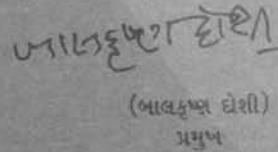 બાલકૃષ્ણ દોશી
(બાલકૃષ્ણ દોશી)
પ્રમુખ